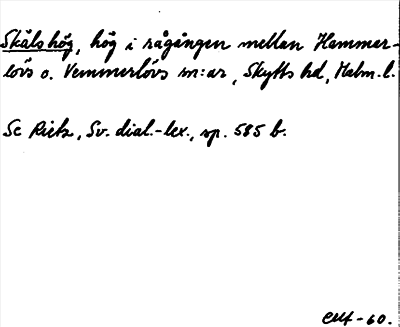 Skåls hög, hög i rågången mellan Hammar-
lövs o. Vemmerlövs sn:ar, Skytts hd, Malm. l.
Se Rietz, Sv. dial.-lex., sp. 585 b.